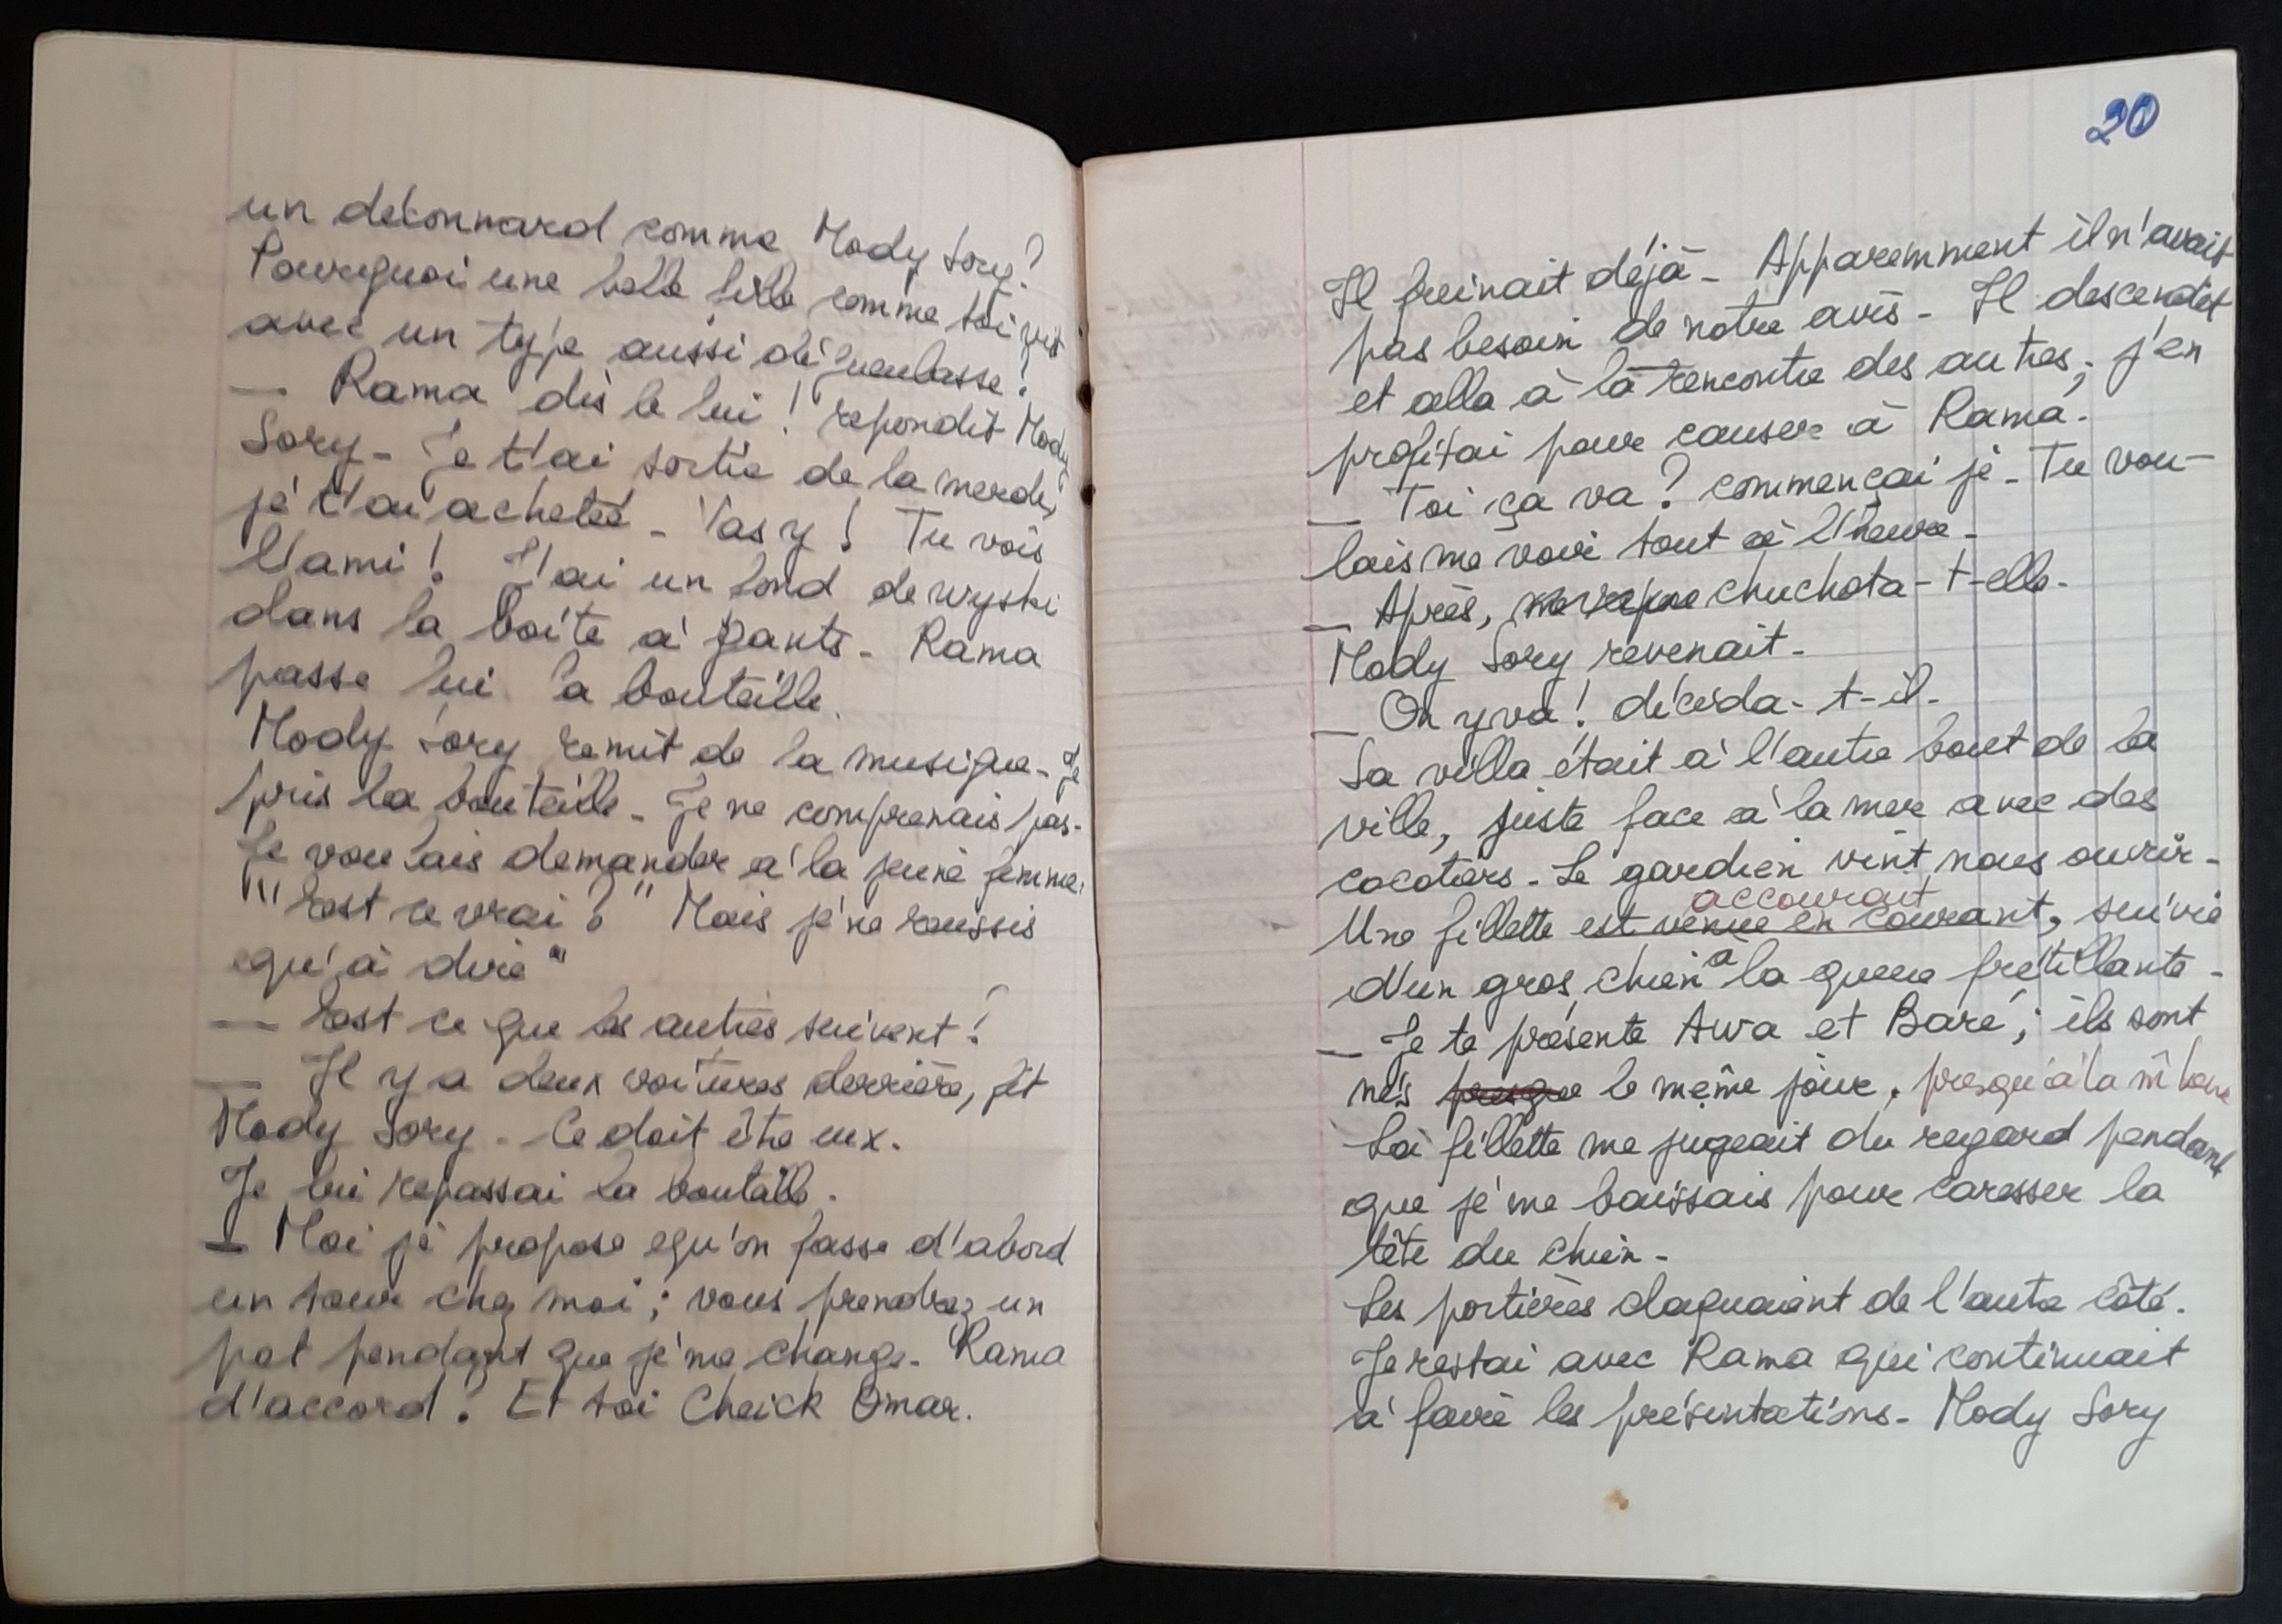 un déconnard comme Mody Sory?
Pourquoi une belle fille comme toi vit
avec un type aussi dégueulasse?
— Rama dis le lui! repondit Mody
Sory - Je t'ai sortie de la merde,
je t'ai achetée - Vas y! Tu vois
l'ami! J'ai un fond de wyski
dans la boîte à gants - Rama
passe lui la bouteille.
Mody Sory remit de la musique - Je
pris la bouteille - Je ne comprenais pas -
Je voulais demander à la jeune femme,
"Est ce vrai?" Mais je ne réussis
qu'à dire"
— Est ce que les autres suivent?
— Il y a deux voitures derrière, fit
Mody Sory - Ce doit être eux.
Je lui repassai la bouteille.
— Moi je propose qu'on fasse d'abord
un tour chez moi; vous prendrez un
pot pendant que je me change - Rama
d'accord? Et toi Cheick Omar.
20
Il freinait déjà - Apparemment il n'avait
pas besoin de notre avis - Il descendit
et alla à la rencontre des autres; j'en
profitai pour causer à Rama.
— Toi ça va? commençai je - Tu vou-
lais me voir tout à l'heure -
— Après, chuchota-t-elle -
Mody Sory revenait -
— On y va! décida-t-il -
Sa villa était à l'autre bout de la
ville, juste face à la mer avec des
cocotiers - Le gardien vint nous ouvrir -
accourait
Une fillette est venue en courant, suivie
d'un gros chien à la queue frétillante -
— Je te présente Awa et Baré; ils sont
nés presque le même jour, presqu'à la m̂ heure
La fillette me jugeait du regard pendant
que je me baissais pour caresser la
tête du chien -
Les portières claquaient de l'autre côté.
Je restai avec Rama qui continuait
à faire les présentations - Mody Sory